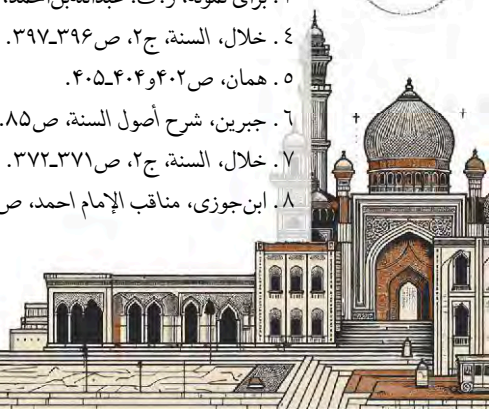 عبدالله‌بن‌احمد،
۴. خلال، السنة، ج۲، ص۳۹۶ـ۳۹۷.
۵. همان، ص۴۰۲و۴۰۴ـ۴۰۵.
۶. جبرین، شرح أصول السنة، ص۸۵.
۷. خلال، السنة، ج۲، ص۳۷۱ـ۳۷۲.
۸. ابن‌جوزی، مناقب الإمام احمد، ص